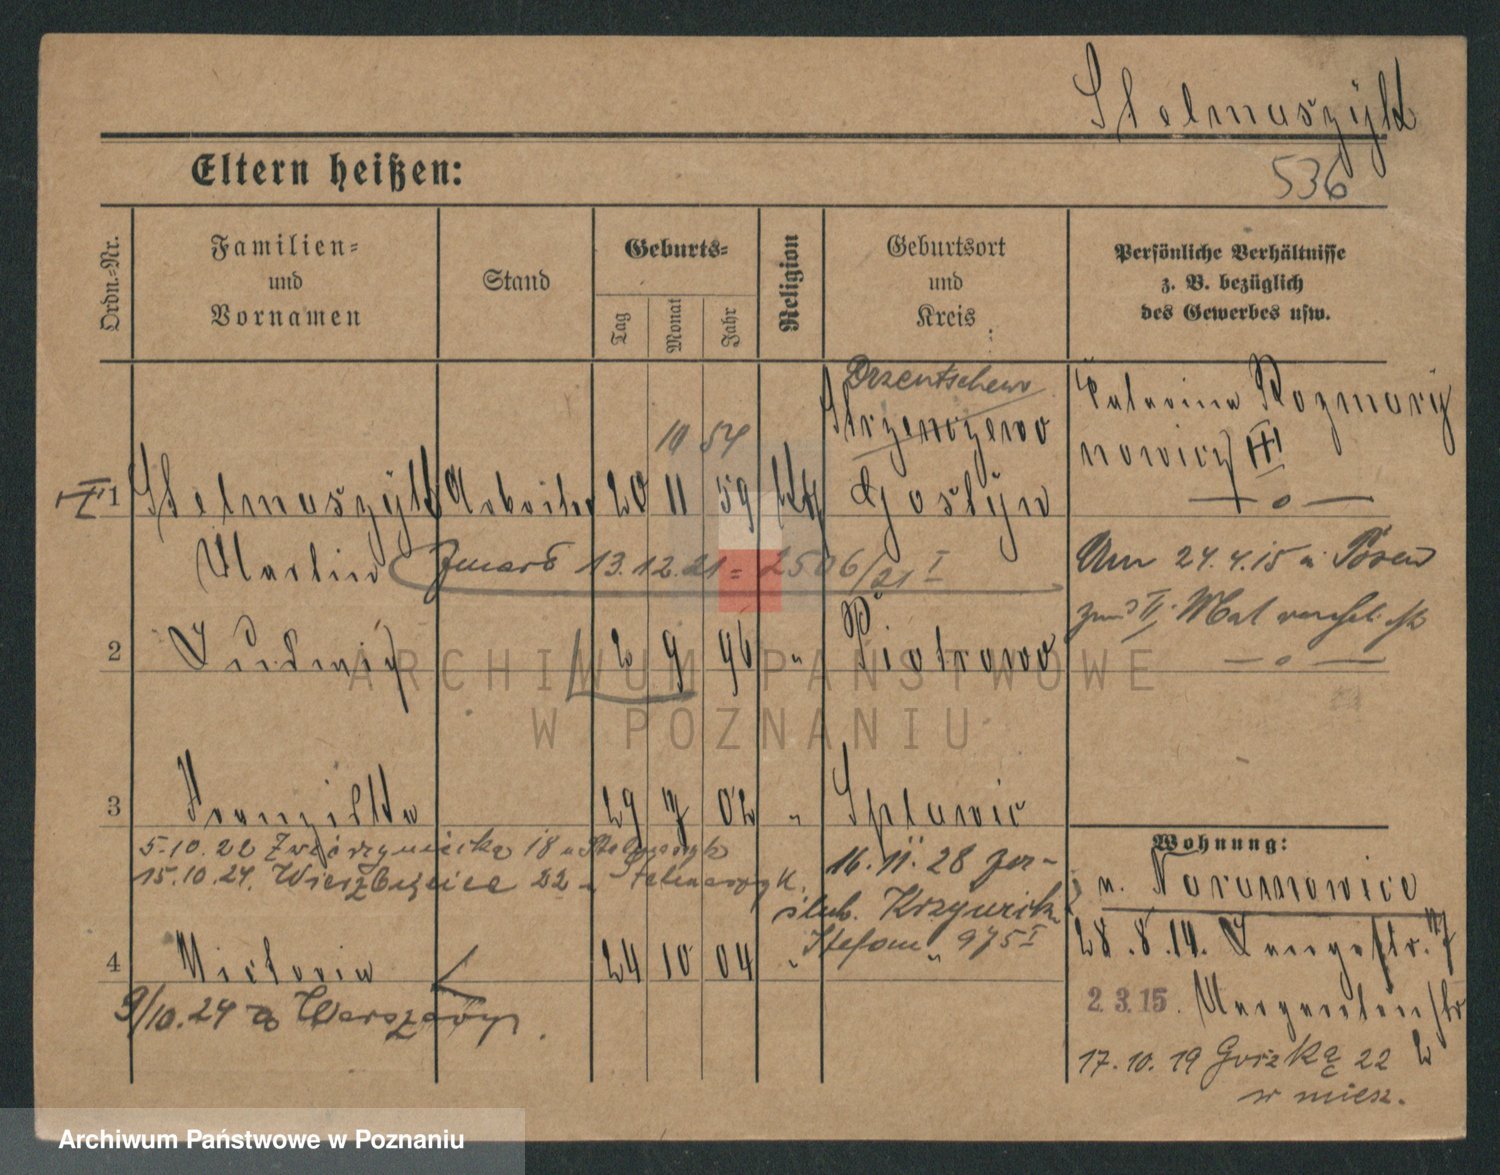 Stelmaszyk
Eltern heißen:
536
Ordn.-Nr.
Familien-
und
Vornamen
Stand
Geburts-
Tag
Monat
Jahr
Religion
Geburtsort
und
Kreis
Persönliche Verhältnisse
z. B. bezüglich
des Gewerbes usw.
Drzentschewo
Strzenczewo
Katarina Rozmary
nowicz
10 54
1 Stelmaszyk Arbeiter 20 11 59 kth Gostyn
Martin Zmarł 13.12.21 = 2506/21 I
Am 24.4.15 in Posen
zum II. Mal verehel.
2 Ludwig 2 9 96 " Piotrowo
3 Franziska 29 7 02 " Splawie
5.10.22 Zwierzyniecka 18 u Stelmaszyk
15.10.24. Wierzbięcice 22 u Stelmaszyk.
16.11.28 zar-
ślub. Krzyżaniak
Stefan " 975 I
4 Victoria 24 10 04 "
9/10.24 Warszawy.
Wohnung:
n. Naramowice
28.8.14. Langestr. 7
2.3.15. Margaretenstr
2
17.10.19 Górską 22
w miesz.
ARCHIWUM PAŃSTWOWE
W POZNANIU
Archiwum Państwowe w Poznaniu